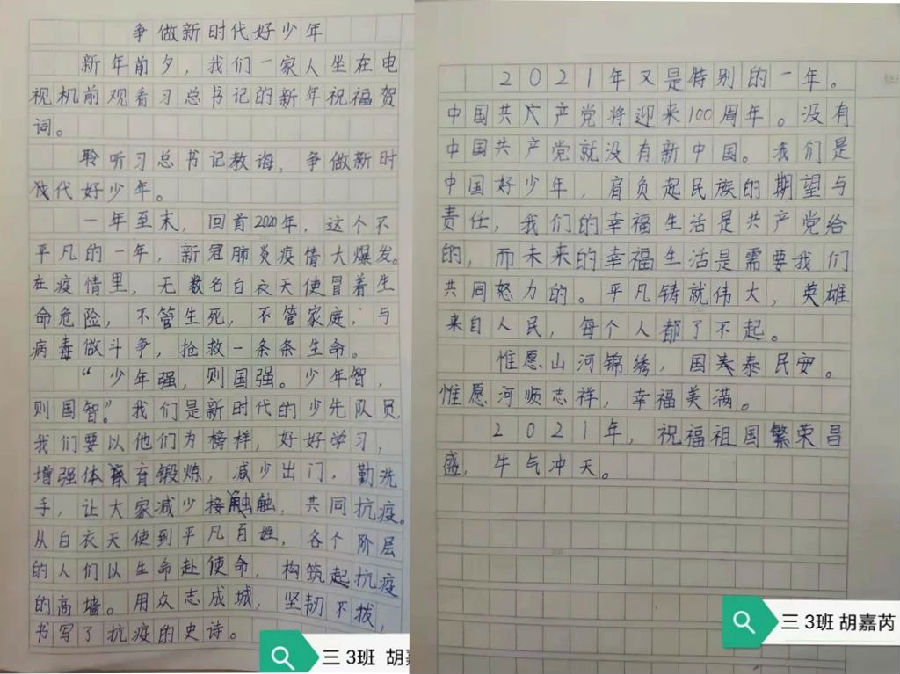 争做新时代好少年
新年前夕，我们一家人坐在电
视机前观看习总书记的新年祝福贺
词。
聆听习总书记教诲，争做新时
代好少年。
一年至末，回首2020年，这个不
平凡的一年，新冠肺炎疫情大爆发。
在疫情里，无数名白衣天使冒着生
命危险，不管生死，不管家庭，与
病毒做斗争，抢救一条条生命。
“少年强，则国强。少年智，
则国智。”我们是新时代的少先队员，
我们要以他们为榜样，好好学习，
增强体育锻炼，减少出门，勤洗
手，让大家减少接触，共同抗疫。
从白衣天使到平凡百姓，各个阶层
的人们以生命赴使命，构筑起抗疫
的高墙。用众志成城，坚韧不拔，
书写了抗疫的史诗。
三 3班 胡嘉
2021年又是特别的一年。
中国共产党将迎来100周年。没有
中国共产党就没有新中国。我们是
中国好少年，肩负起民族的期望与
责任，我们的幸福生活是共产党给
的，而未来的幸福生活是需要我们
共同努力的。平凡铸就伟大，英雄
来自人民，每个人都了不起。
惟愿山河锦绣，国泰民安。
惟愿河顺志祥，幸福美满。
2021年，祝福祖国繁荣昌
盛，牛气冲天。
三 3班 胡嘉芮